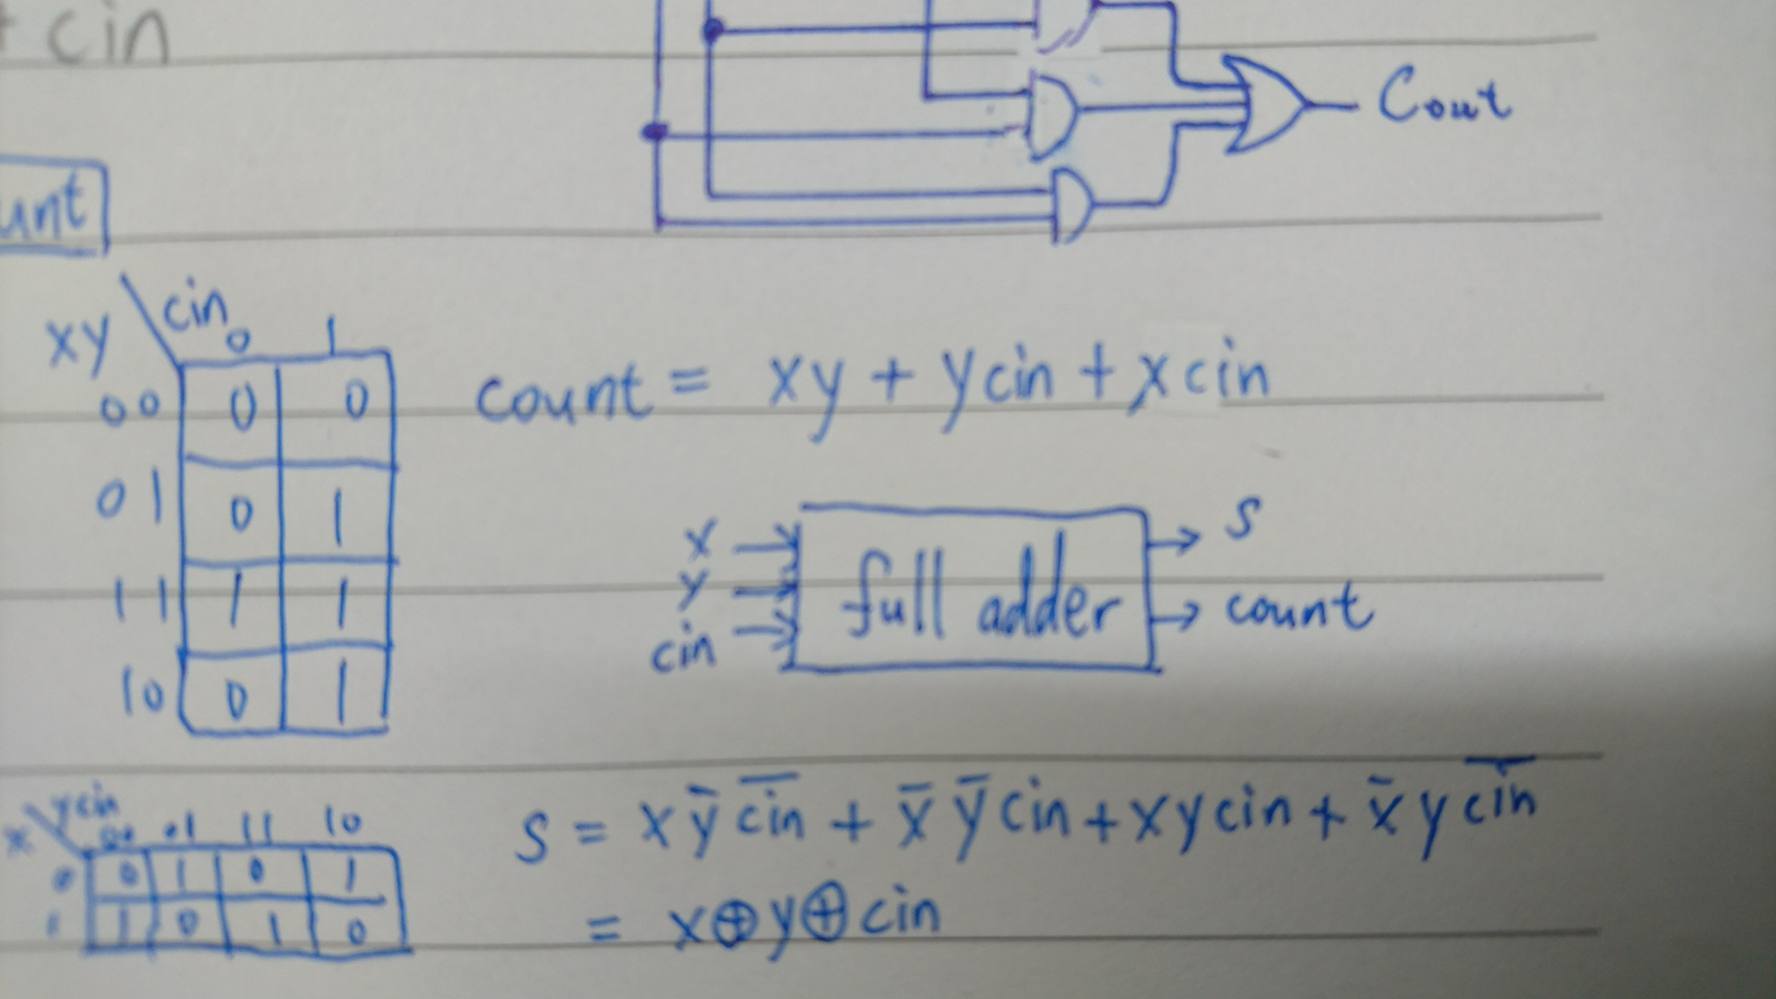 + cin
Cout
unt
xy cin 0 1
00 0 0
01 0 1
11 1 1
10 0 1
count = xy + ycin + xcin
x
y
cin
full adder
s
count
x ycin 00 01 11 10
0 0 1 0 1
1 1 0 1 0
s = xȳc̅i̅n̅ + x̄ȳcin + xycin + x̄yc̅i̅n̅
= x⊕y⊕cin